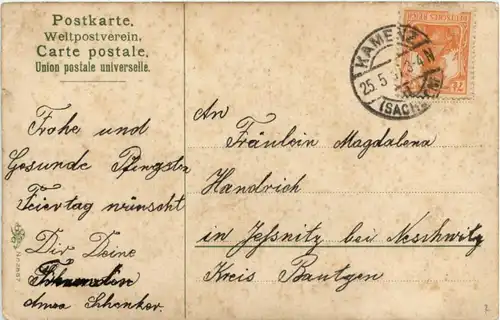 Postkarte.
Weltpostverein.
Carte postale.
Union postale universelle.
KAMENZ
25.5
(SACHSEN)
DEUTSCHES REICH
7½
Frohe und
Gesunde Pfingsten
Feiertag wünscht
Dir Deine
Anna Schenker.
An
Fräulein Magdalena
Handrich
in Jeßnitz bei Neschwitz
Kreis Bautzen